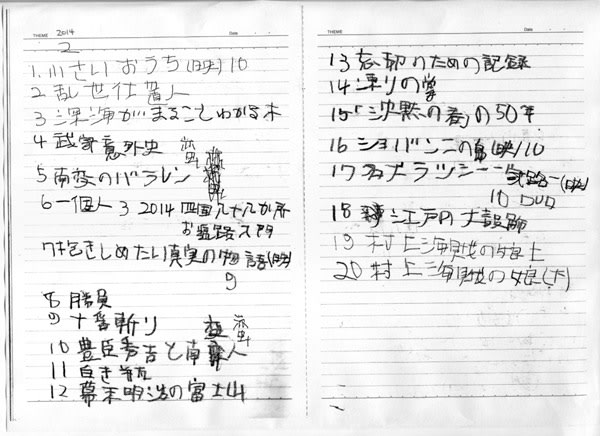 THEME 2014 Date
2
1. 小さいおうち(映)10
2 乱世仕置人
3 深海がまるごとわかる本
4 武家意外史
5 南蛮のバテレン
6 一個人 3 2014 四国八十八か所
お遍路入門
7 抱きしめたい真実の物語(映)
9
8 勝負
9 十番斬り
10 豊臣秀吉と南蛮人
11 白き
12 幕末明治の富士山
THEME Date
13 忘却のための記録
14 凍りの掌
15 「沈黙の春」の50年
16 ショパン (映)10
17
10 DVD
18 江戸の大
19 村上海賊の娘 上
20 村上海賊の娘(下)